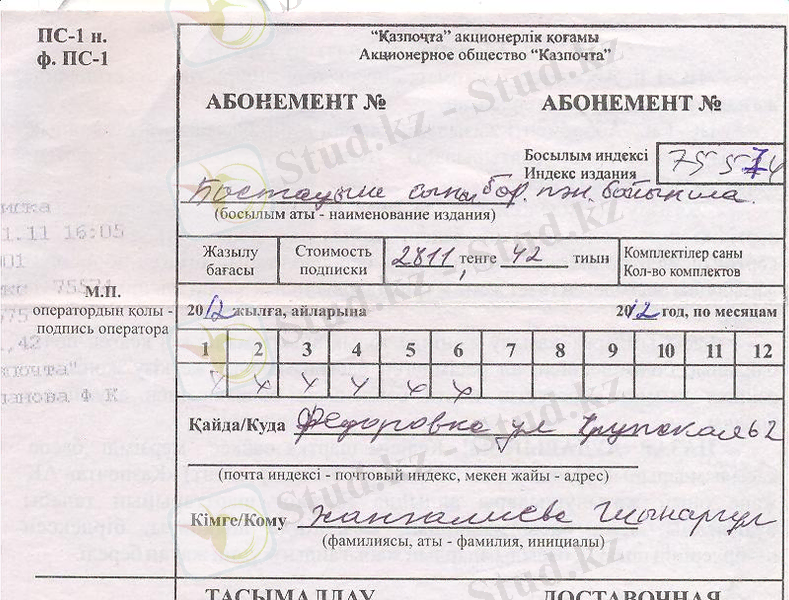 ПС-1 н.
ф. ПС-1
"Қазпочта" акционерлік қоғамы
Акционерное общество "Казпочта"
АБОНЕМЕНТ № АБОНЕМЕНТ №
Босылым индексі
Индекс издания 75574
Бастауыш сынып бар. пән. бойынша
(босылым аты - наименование издания)
Жазылу бағасы Стоимость подписки 2811, тенге 42 тиын Комплектілер саны Кол-во комплектов
1.11 16:05
М.П.
оператордың қолы -
подпись оператора
2012 жылға, айларына 2012 год, по месяцам
1 2 3 4 5 6 7 8 9 10 11 12
Қайда/Куда Федоровка ул Крупская 62
(почта индексі - почтовый индекс, мекен жайы - адрес)
Кімге/Кому Жангалиева Гүлнаргүл
(фамилиясы, аты - фамилия, инициалы)
ТАСЫМАЛДАУ ДОСТАВОЧНАЯ
Stud.kz - Stud.kz